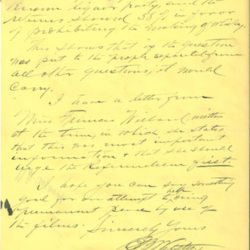 known liquor party, and the
returns showed 58% in favor
of prohibiting the making of whiskey
This shows that if the question
was put to the people separately from
all other questions, it would
carry.
I have a letter from
Miss Frances Willard written
at the time, in which she states
that this was most important
information & that we should
urge the Referendum first.
I hope you can say something
good for our attempt to bring
permanent peace by use of
the films. Sincerely Yours